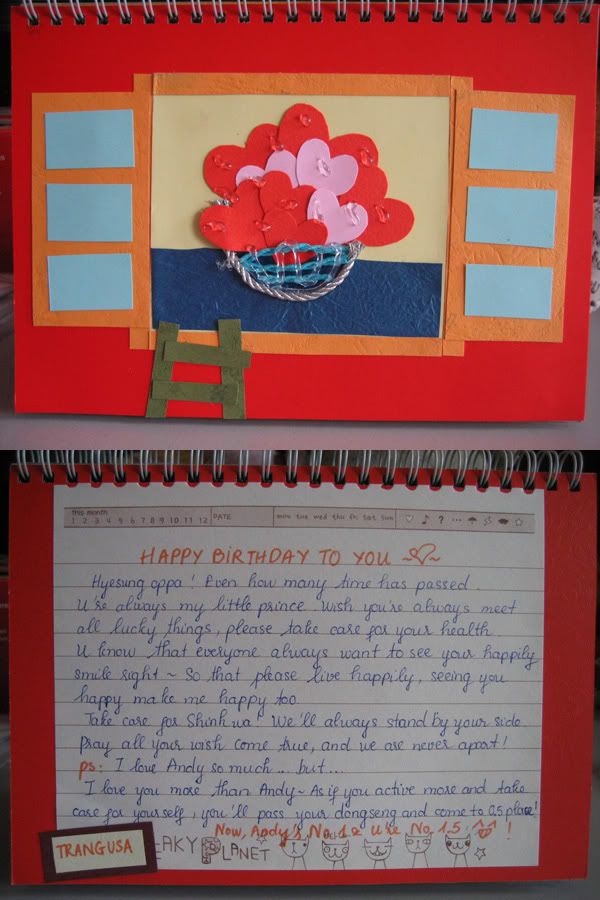 this month
1 2 3 4 5 6 7 8 9 10 11 12 DATE mon tue wed thu fri sat sun ? ...
HAPPY BIRTHDAY TO YOU ~
Hyesung oppa! Even how many time has passed.
U're always my little prince. Wish you're always meet
all lucky things, please take care for your health.
U know that everyone always want to see your happily
smile right ~ So that please live happily, seeing you
happy make me happy too.
Take care for Shinhwa! We'll always stand by your side.
Pray all your wish come true, and we are never apart!
ps: I love Andy so much ... but ...
I love you more than Andy ~ As if you active more and take
care for yourself, you'll pass your dongseng and come to 0.5 place!
Now, Andy's No. 1.2 U're No. 1.5 ^^ !
TRANGUSA
EAKY PLANET